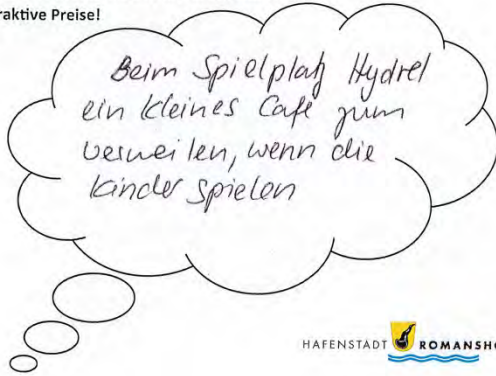 raktive Preise!
Beim Spielplatz Hydrel
ein kleines Café zum
verweilen, wenn die
Kinder spielen
HAFENSTADT ROMANSHO